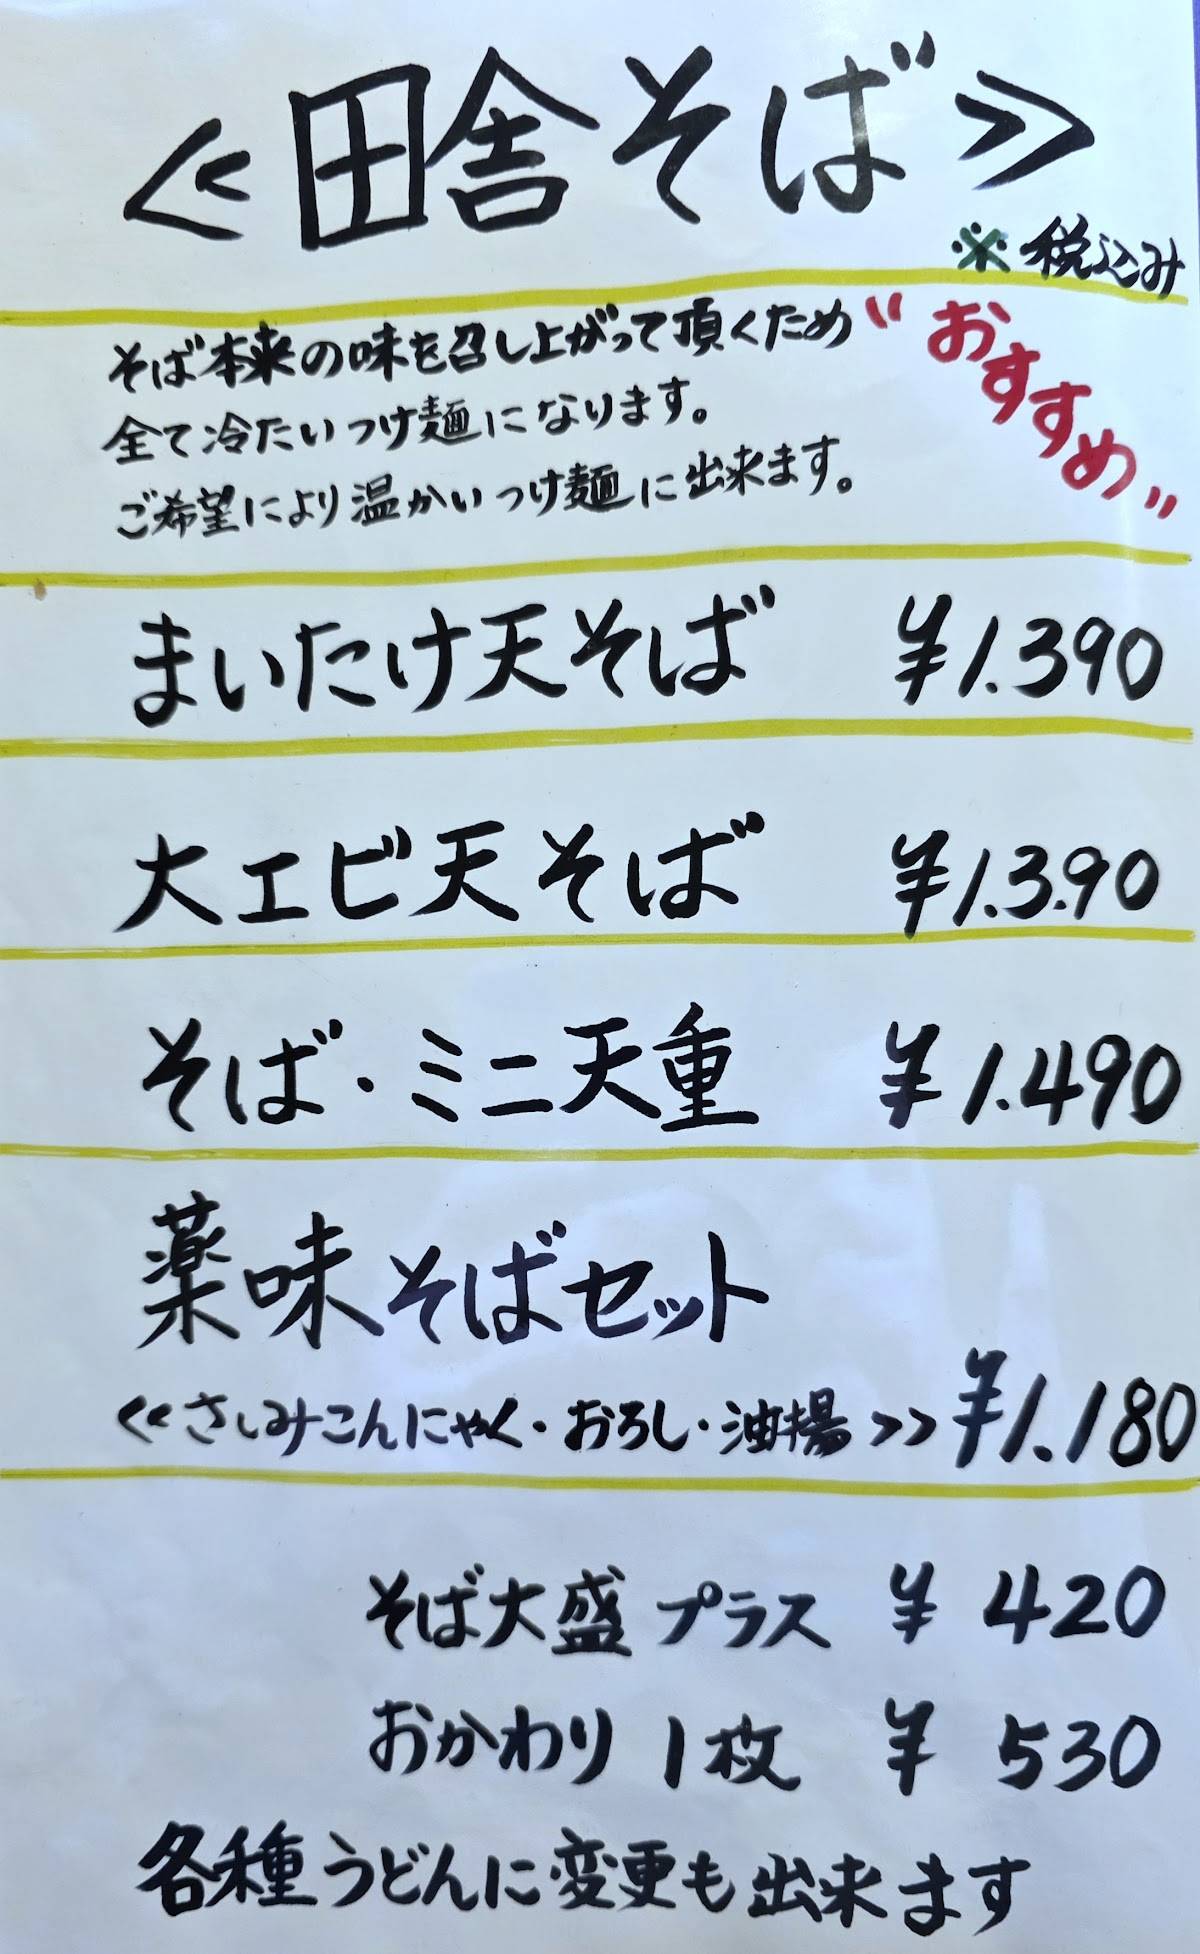 ≪田舎そば≫
※税込み
そば本来の味を召し上がって頂くため
全て冷たいつけ麺になります。
ご希望により温かいつけ麺に出来ます。
"おすすめ"
まいたけ天そば ¥1.390
大エビ天そば ¥1.3.90
そば・ミニ天重 ¥1.490
薬味そばセット
≪さしみこんにゃく・おろし・油揚≫ ¥1.180
そば大盛プラス ¥420
おかわり1枚 ¥530
各種うどんに変更も出来ます